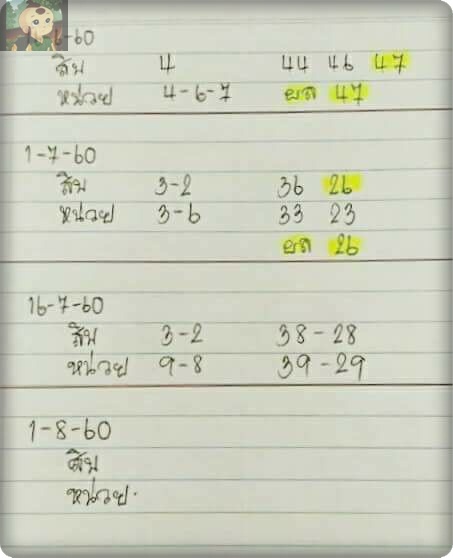 6-60
สิบ 4 44 46 47
หน่วย 4-6-7 ผล 47
1-7-60
สิบ 3-2 36 26
หน่วย 3-6 33 23
ผล 26
16-7-60
สิบ 3-2 38-28
หน่วย 9-8 39-29
1-8-60
สิบ
หน่วย.